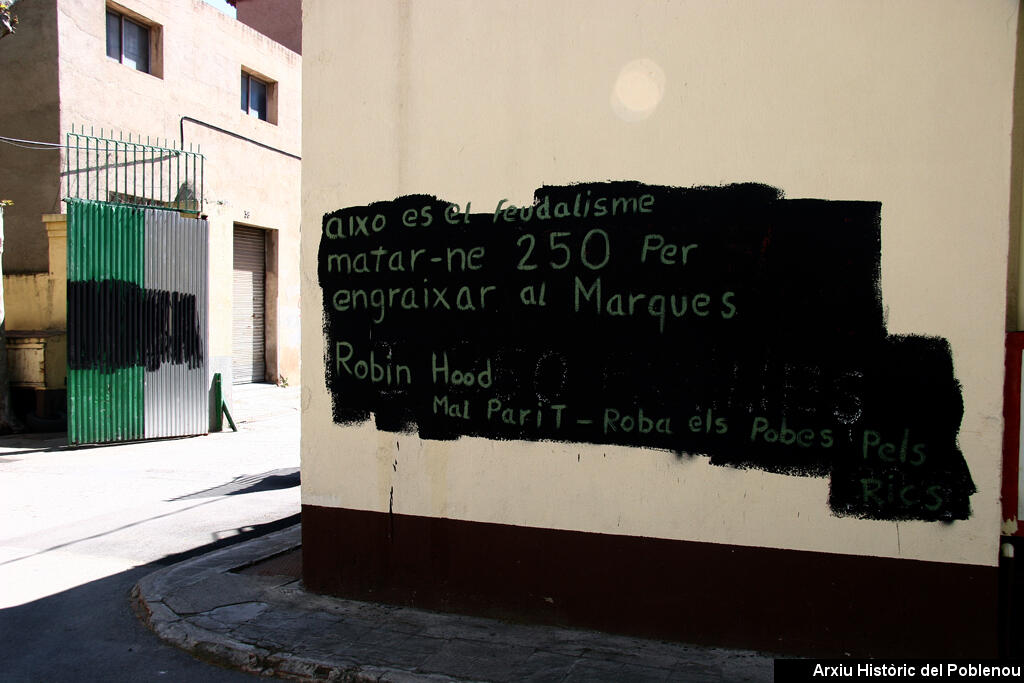 aixo es el feudalisme
matar-ne 250 Per
engraixar al Marques
Robin Hood
Mal Parit - Roba els Pobes Pels
Rics
Arxiu Històric del Poblenou